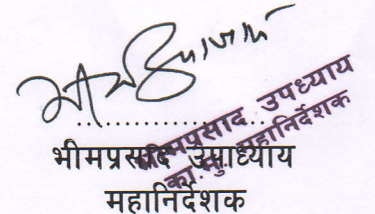 भीमप्रसाद उपाध्याय
का.मु. महानिर्देशक
भीमप्रसाद उपाध्याय
महानिर्देशक